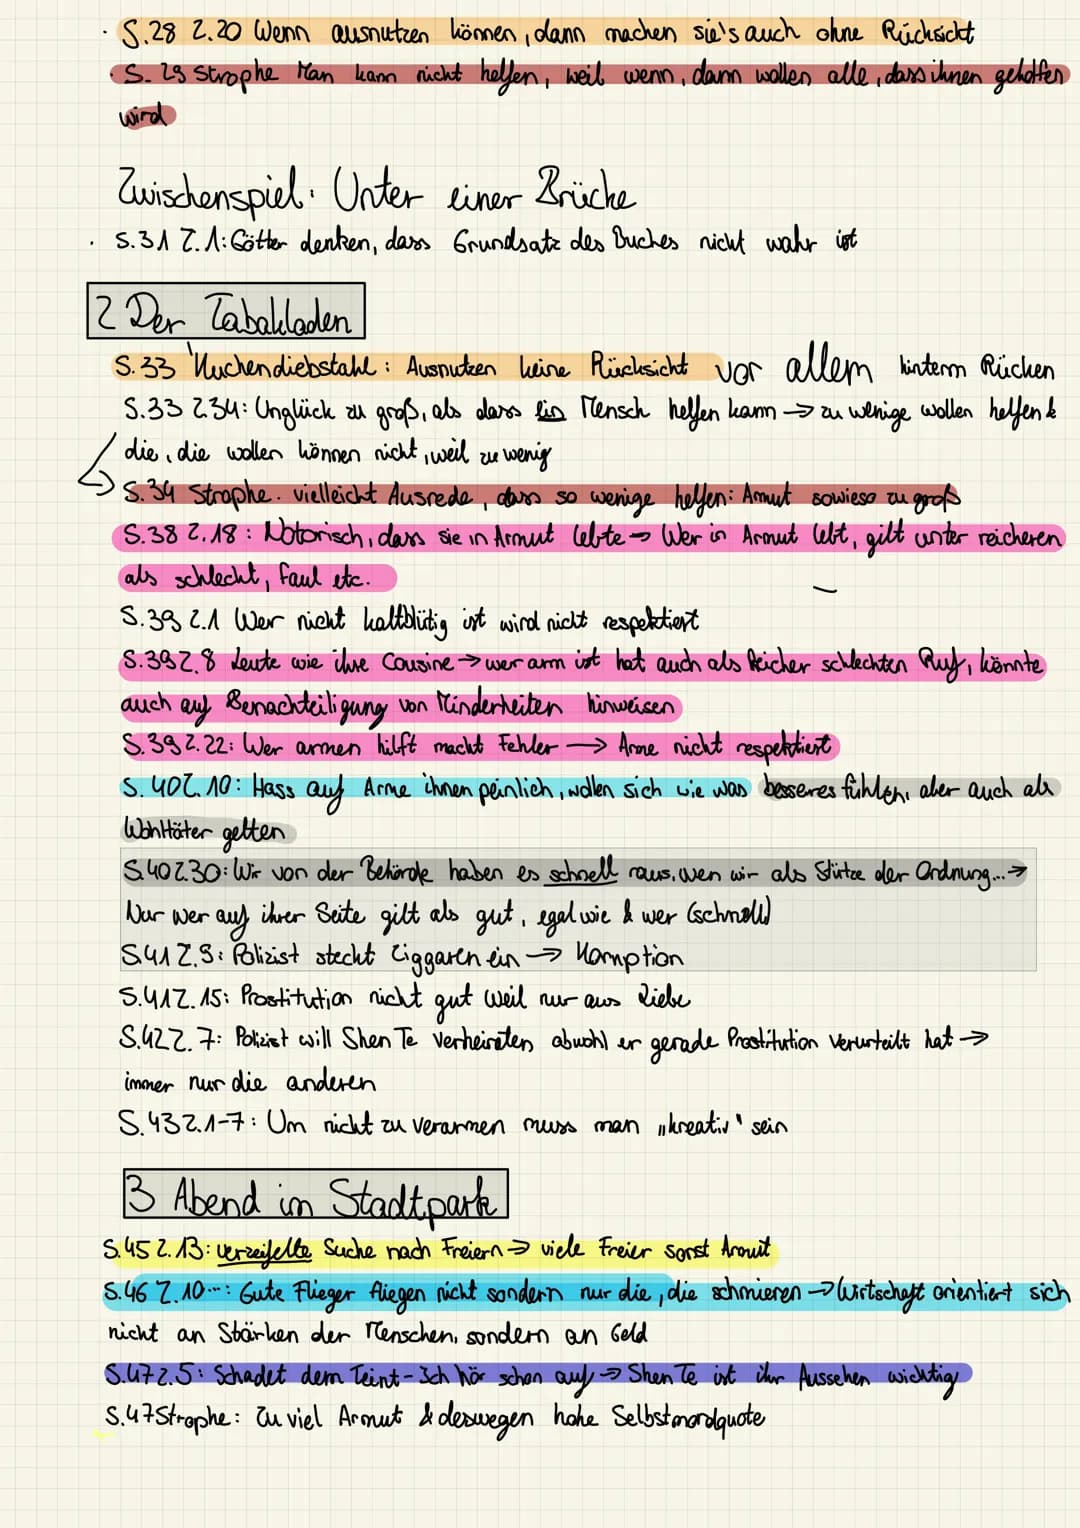 · S.28 Z.20 Wenn ausnutzen können, dann machen sie's auch ohne Rücksicht
· S. 29 Strophe Man kann nicht helfen, weil wenn, dann wollen alle, dass ihnen geholfen
wird
Zwischenspiel: Unter einer Brücke
· S.31 Z.1: Götter denken, dass Grundsatz des Buches nicht wahr ist
2 Der Tabakladen
S.33 Kuchendiebstahl: Ausnutzen keine Rücksicht vor allem hinterm Rücken
S.33 Z.34: Unglück zu groß, als dass ein Mensch helfen kann → zu wenige wollen helfen &
die, die wollen können nicht, weil zu wenig
S.34 Strophe: vielleicht Ausrede, dass so wenige helfen: Armut sowieso zu groß
S.38 Z.18: Notorisch, dass sie in Armut lebte → Wer in Armut lebt, gilt unter reicheren
als schlecht, faul etc.
S.39 Z.1 Wer nicht kaltblütig ist wird nicht respektiert
S.39 Z.8 Leute wie ihre Cousine → wer arm ist hat auch als Reicher schlechten Ruf, könnte
auch auf Benachteiligung von Minderheiten hinweisen
S.39 Z.22: Wer armen hilft macht Fehler → Arme nicht respektiert
S. 40 Z.10: Hass auf Arme ihnen peinlich, wollen sich wie was besseres fühlen, aber auch als
Wohltäter gelten
S.40 Z.30: Wir von der Behörde haben es schnell raus, wen wir als Stütze der Ordnung... →
Nur wer auf ihrer Seite gilt als gut, egal wie & wer (schnell)
S.41 Z.9: Polizist steckt Ziggaren ein → Korruption
S.41 Z.15: Prostitution nicht gut weil nur aus Liebe
S.42 Z.7: Polizist will Shen Te verheiraten obwohl er gerade Prostitution verurteilt hat →
immer nur die anderen
S.43 Z.1-7: Um nicht zu verarmen muss man „kreativ" sein
3 Abend im Stadtpark
S.45 Z.13: verzeifelte Suche nach Freiern → viele Freier sonst Armut
S.46 Z.10...: Gute Flieger fliegen nicht sondern nur die, die schmieren → Wirtschaft orientiert sich
nicht an Stärken der Menschen, sondern an Geld
S.47 Z.5: Schadet dem Teint - Ich hör schon auf → Shen Te ist ihr Aussehen wichtig
S.47 Strophe: Zu viel Armut & deswegen hohe Selbstmordquote